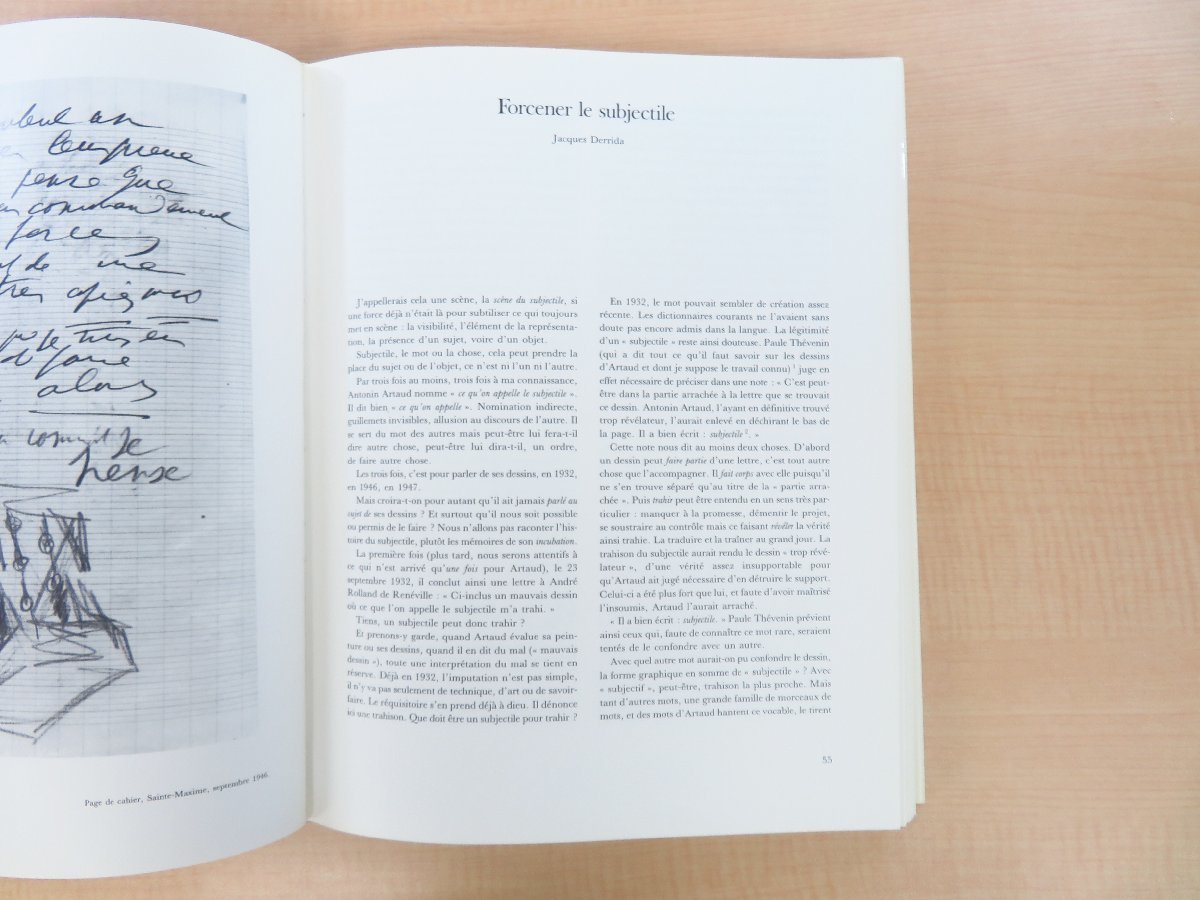 commandement
force
alors
pense
Page de cahier, Sainte-Maxime, septembre 1946.
Forcener le subjectile
Jacques Derrida
J'appellerais cela une scène, la scène du subjectile, si
une force déjà n'était là pour subtiliser ce qui toujours
met en scène : la visibilité, l'élément de la représenta-
tion, la présence d'un sujet, voire d'un objet.
Subjectile, le mot ou la chose, cela peut prendre la
place du sujet ou de l'objet, ce n'est ni l'un ni l'autre.
Par trois fois au moins, trois fois à ma connaissance,
Antonin Artaud nomme « ce qu'on appelle le subjectile ».
Il dit bien « ce qu'on appelle ». Nomination indirecte,
guillemets invisibles, allusion au discours de l'autre. Il
se sert du mot des autres mais peut-être lui fera-t-il
dire autre chose, peut-être lui dira-t-il, un ordre,
de faire autre chose.
Les trois fois, c'est pour parler de ses dessins, en 1932,
en 1946, en 1947.
Mais croira-t-on pour autant qu'il ait jamais parlé au
sujet de ses dessins ? Et surtout qu'il nous soit possible
ou permis de le faire ? Nous n'allons pas raconter l'his-
toire du subjectile, plutôt les mémoires de son incubation.
La première fois (plus tard, nous serons attentifs à
ce qui n'est arrivé qu'une fois pour Artaud), le 23
septembre 1932, il conclut ainsi une lettre à André
Rolland de Renéville : « Ci-inclus un mauvais dessin
où ce que l'on appelle le subjectile m'a trahi. »
Tiens, un subjectile peut donc trahir ?
Et prenons-y garde, quand Artaud évalue sa pein-
ture ou ses dessins, quand il en dit du mal (« mauvais
dessin »), toute une interprétation du mal se tient en
réserve. Déjà en 1932, l'imputation n'est pas simple,
il n'y va pas seulement de technique, d'art ou de savoir-
faire. Le réquisitoire s'en prend déjà à dieu. Il dénonce
ici une trahison. Que doit être un subjectile pour trahir ?
En 1932, le mot pouvait sembler de création assez
récente. Les dictionnaires courants ne l'avaient sans
doute pas encore admis dans la langue. La légitimité
d'un « subjectile » reste ainsi douteuse. Paule Thévenin
(qui a dit tout ce qu'il faut savoir sur les dessins
d'Artaud et dont je suppose le travail connu) 1 juge en
effet nécessaire de préciser dans une note : « C'est peut-
être dans la partie arrachée à la lettre que se trouvait
ce dessin. Antonin Artaud, l'ayant en définitive trouvé
trop révélateur, l'aurait enlevé en déchirant le bas de
la page. Il a bien écrit : subjectile 2. »
Cette note nous dit au moins deux choses. D'abord
un dessin peut faire partie d'une lettre, c'est tout autre
chose que l'accompagner. Il fait corps avec elle puisqu'il
ne s'en trouve séparé qu'au titre de la « partie arra-
chée ». Puis trahir peut être entendu en un sens très par-
ticulier : manquer à la promesse, démentir le projet,
se soustraire au contrôle mais ce faisant révéler la vérité
ainsi trahie. La traduire et la traîner au grand jour. La
trahison du subjectile aurait rendu le dessin « trop révé-
lateur », d'une vérité assez insupportable pour
qu'Artaud ait jugé nécessaire d'en détruire le support.
Celui-ci a été plus fort que lui, et faute d'avoir maîtrisé
l'insoumis, Artaud l'aurait arraché.
« Il a bien écrit : subjectile. » Paule Thévenin prévient
ainsi ceux qui, faute de connaître ce mot rare, seraient
tentés de le confondre avec un autre.
Avec quel autre mot aurait-on pu confondre le dessin,
la forme graphique en somme de « subjectile » ? Avec
« subjectif », peut-être, trahison la plus proche. Mais
tant d'autres mots, une grande famille de morceaux de
mots, et des mots d'Artaud hantent ce vocable, le tirent
55